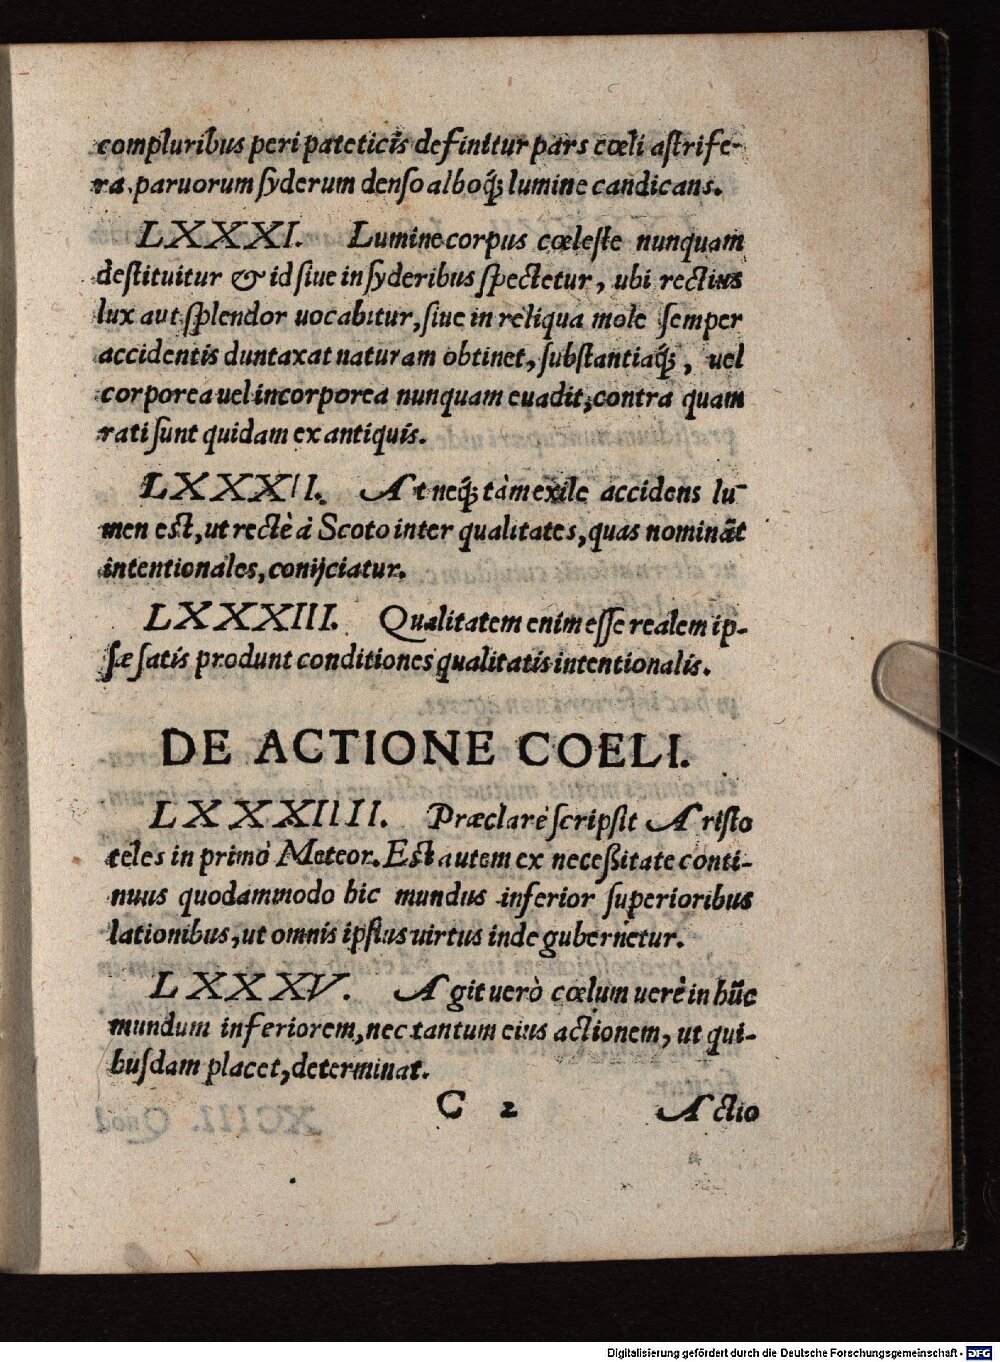 compluribus peripateticis definitur pars cœli aſtrife-
ra, paruorum ſyderum denſo alboq́; lumine candicans.
LXXXI. Lumine corpus cœleſte nunquam
deſtituitur & id ſiue in ſyderibus ſpectetur, ubi rectius
lux aut ſplendor uocabitur, ſiue in reliqua mole ſemper
accidentis duntaxat naturam obtinet, ſubſtantiaq́;, uel
corporea uel incorporea nunquam euadit, contra quam
rati ſunt quidam ex antiquis.
LXXXII. At neq́; tàm exile accidens lu-
men eſt, ut rectè à Scoto inter qualitates, quas nominãt
intentionales, conijciatur.
LXXXIII. Qualitatem enim eſſe realem ip-
ſæ ſatis produnt conditiones qualitatis intentionalis.
DE ACTIONE COELI.
LXXXIIII. Præclarè ſcripſit Ariſto
teles in primo Meteor. Eſt autem ex neceßitate conti-
nuus quodammodo hic mundus inferior ſuperioribus
lationibus, ut omnis ipſius uirtus inde gubernetur.
LXXXV. Agit uerò cœlum uerè in hũc
mundum inferiorem, nec tantum eius actionem, ut qui-
buſdam placet, determinat.
C 2 Actio
Digitalisierung gefördert durch die Deutsche Forschungsgemeinschaft - DFG